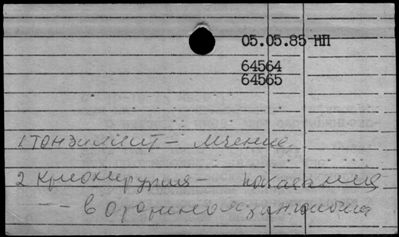 05.05.85 НП
64564
64565
1 Тонзиллит – лечение
2 Криохирургия – показания
– – в оториноларингологии